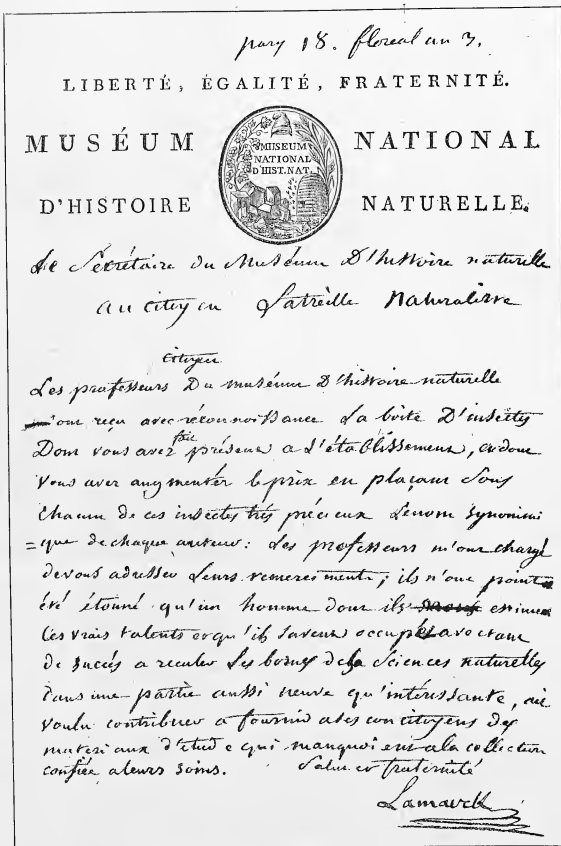 pary 18. floreal an 3.
LIBERTÉ, ÉGALITÉ, FRATERNITÉ.
MUSÉUM NATIONAL
MUSEUM
NATIONAL
D'HIST. NAT.
D'HISTOIRE NATURELLE.
Le Secrétaire du Muséum D'histoire naturelle
au citoyen Latreille Naturaliste
citoyen
Les professeurs Du muséum D'histoire naturelle
ont reçu avec réconnoissance La boite D'insectes
Dont vous avez fait présent a L'établissement, et dont
vous avez augmenter le prix en plaçant sous
chacun de ces insectes très précieux Le nom synonimi
=que de chaque auteur: Les professeurs m'ont chargé
de vous adresser Leurs remerciments; ils n'ont point
été étonné qu'un homme dont ils estiment
les vrais talents et qu'ils savent occupé avec tant
de succés a reculer Les bornes de la Sciences naturelles
dans une partie aussi neuve qu'intéressante, ait
voulu contribuer a fournir a ses concitoyens des
materiaux d'etude qui manquoient a la collection
confiée a leurs soins. Salut et fraternité
Lamarck